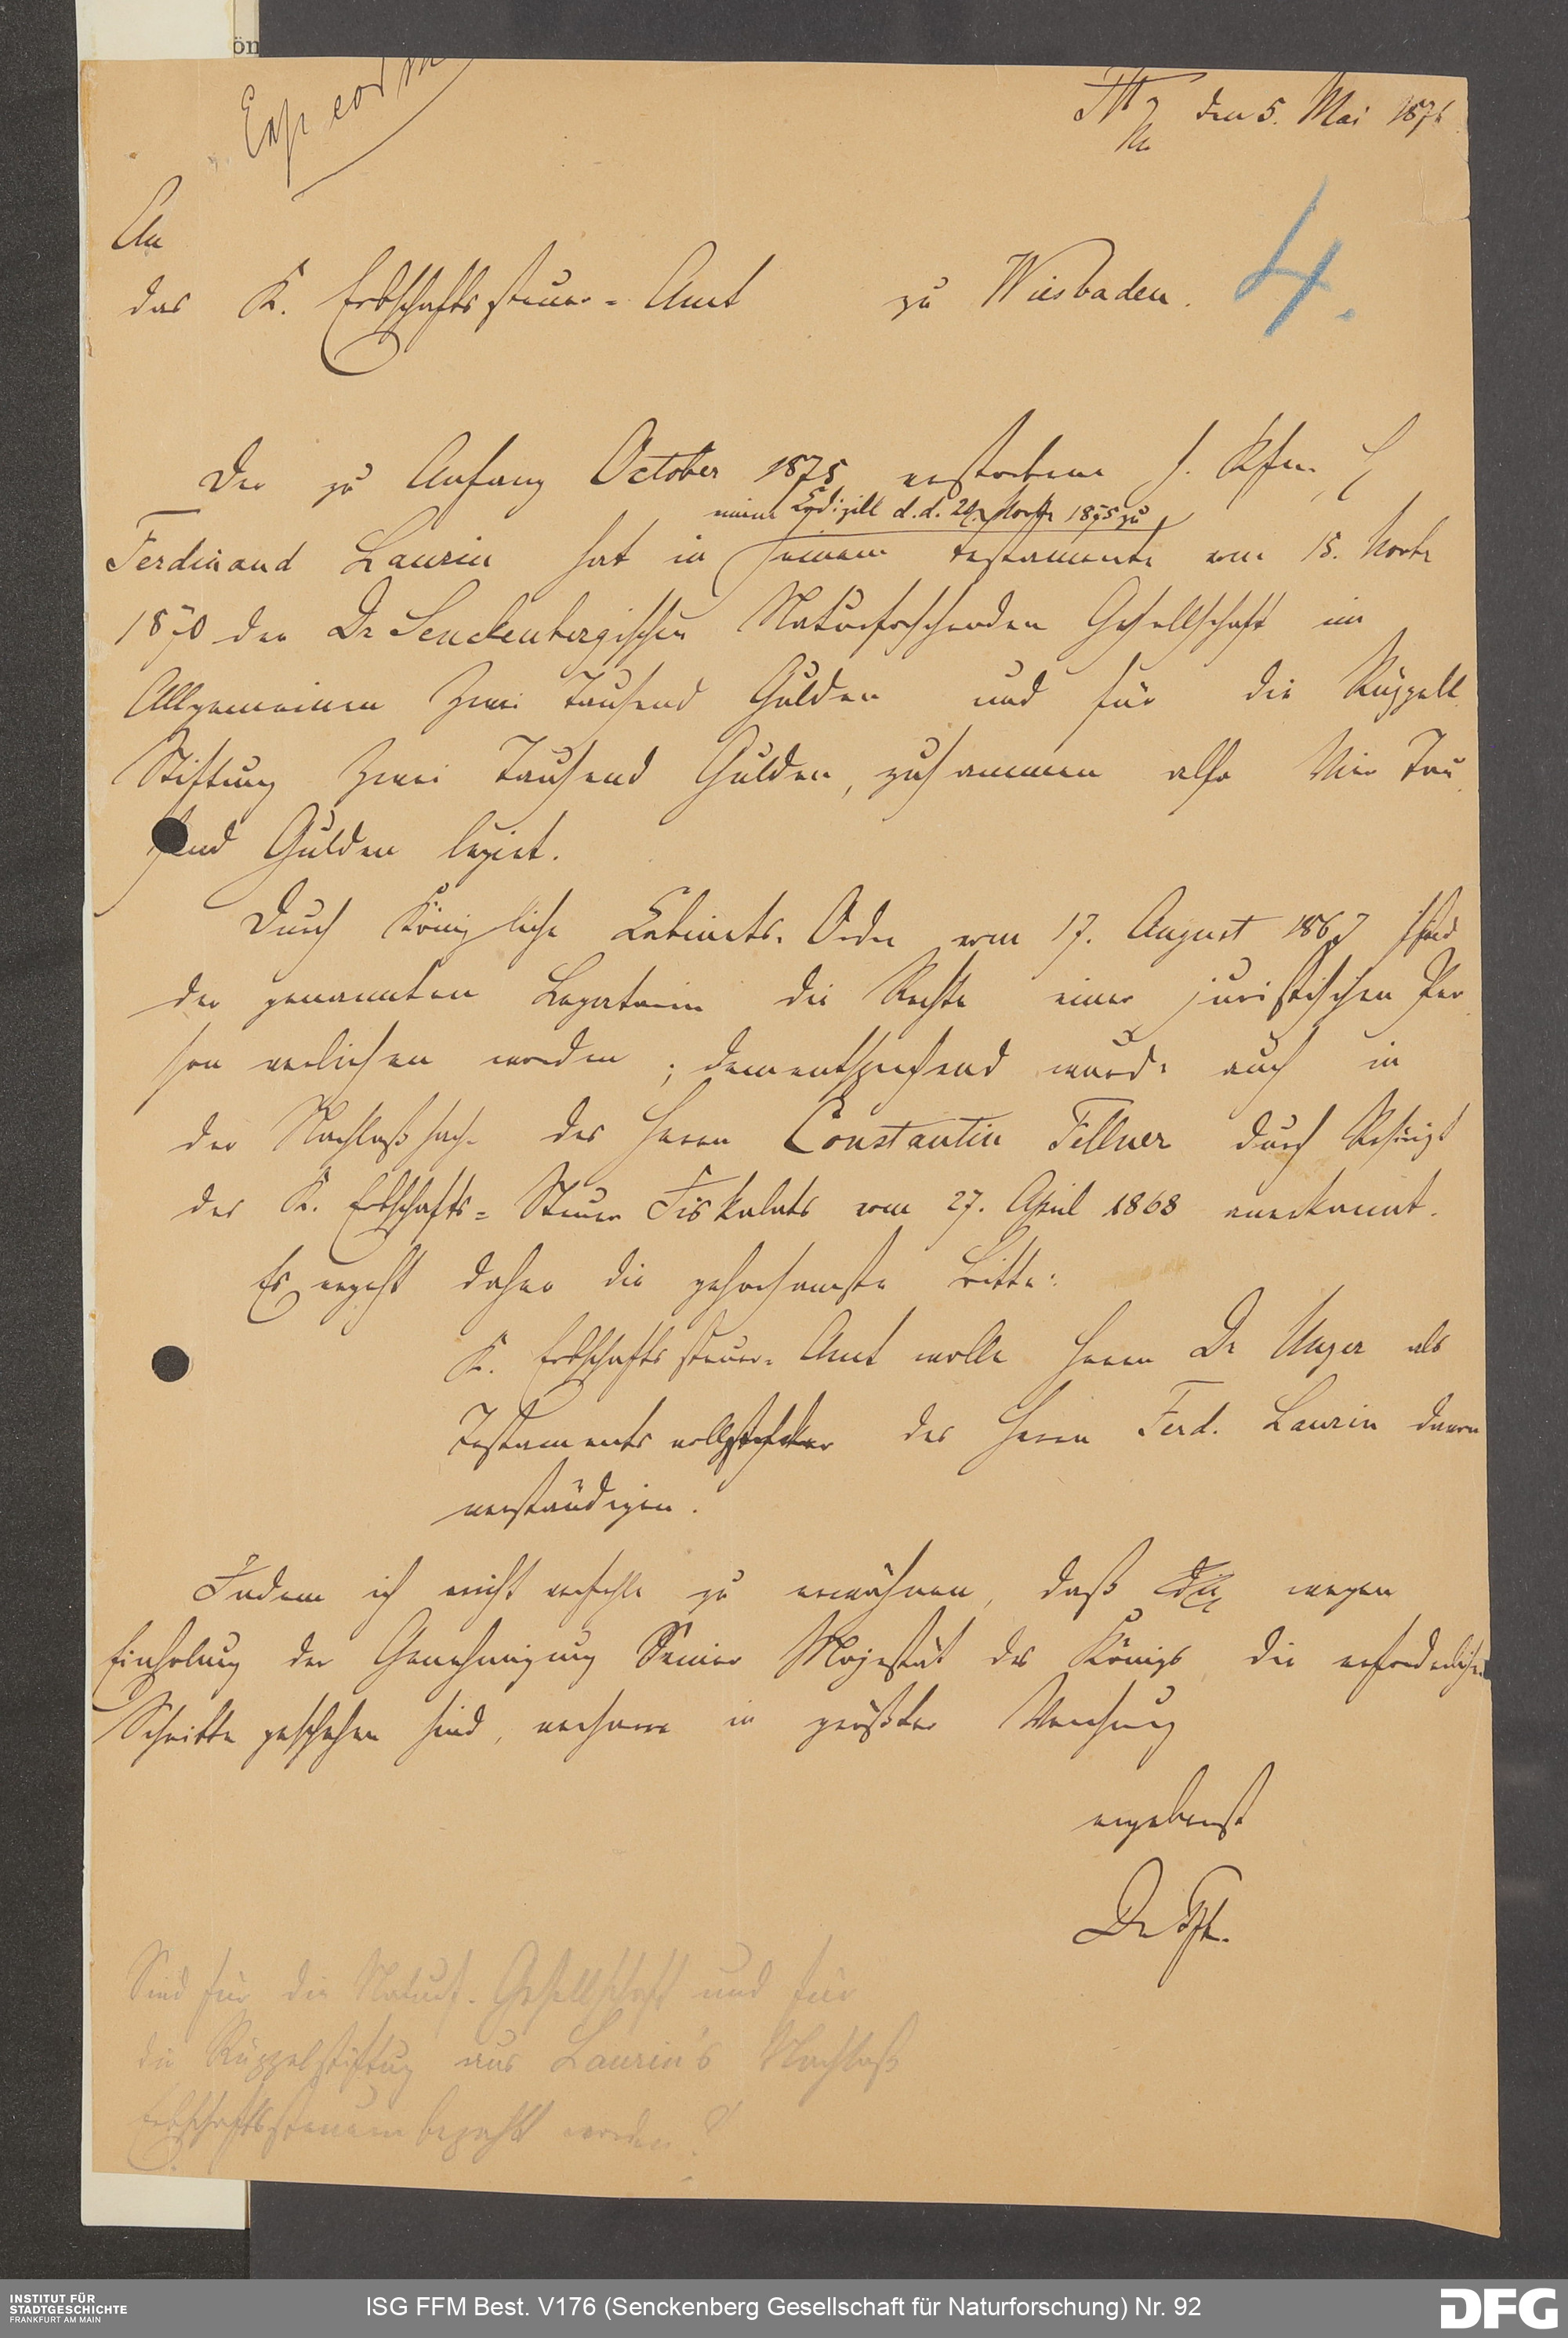 ön
Exp eod
den 5. Mai 1876
An
das K. Erbschaftssteuer-Amt zu Wiesbaden.
4.
Der zu Anfang October 1875 verstorbene H. Kfm.
einem Kodizill d.d. 1875 zu
Ferdinand Laurin hat in seinem Testamente vom 15. Novbr
1870 der Dr Senckenbergischen Naturforschenden Gesellschaft im
Allgemeinen Zwei Tausend Gulden und für die Rüppell
Stiftung Zwei Tausend Gulden, zusammen also Vier Tau
send Gulden legirt.
Durch Königliche Cabinets-Ordre vom 17. August 1867 sind
der genannten Legatarin die Rechte einer juristischen Per
son verliehen worden; dementsprechend wurde auch in
der Nachlaßsache des Herrn Constantin Fellner durch Rescript
des K. Erbschafts-Steuer Fiskalats vom 27. April 1868 anerkannt.
Es ergeht daher die gehorsamste Bitte:
K. Erbschaftssteuer-Amt wolle Herrn Dr Unger als
Testamentsvollstrecker des Herrn Ferd. Laurin davon
verständigen.
Indem ich nicht verfehle zu erwähnen, daß wegen
Einholung der Genehmigung Seiner Majestät des Königs die erforderlichen
Schritte geschehen sind, verharre in größter Verehrung
ergebenst
Dr
Sind für die Naturf. Gesellschaft und für
die Rüppelstiftung aus Laurin's Nachlaß
Erbschaftssteuern bezahlt worden?
INSTITUT FÜR
STADTGESCHICHTE
FRANKFURT AM MAIN
ISG FFM Best. V176 (Senckenberg Gesellschaft für Naturforschung) Nr. 92
DFG